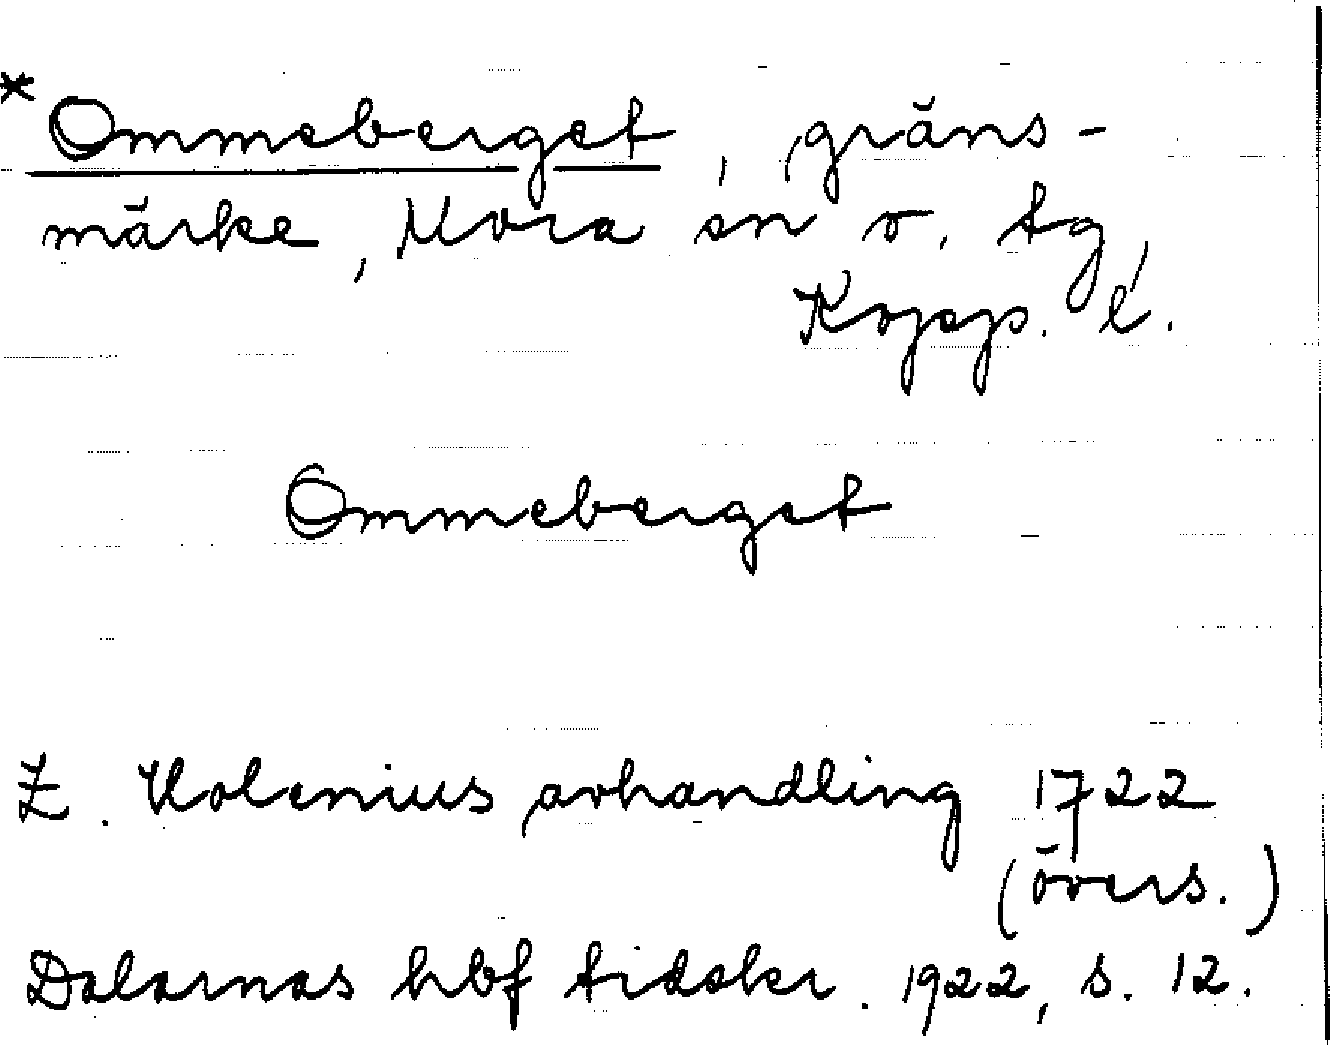 *Ommeberget, gräns-
märke, Mora sn o. tg
Kopp. l.
Ommeberget
Z. Holenius avhandling 1722
(övers.)
Dalarnas hbf tidskr. 1922, s. 12.